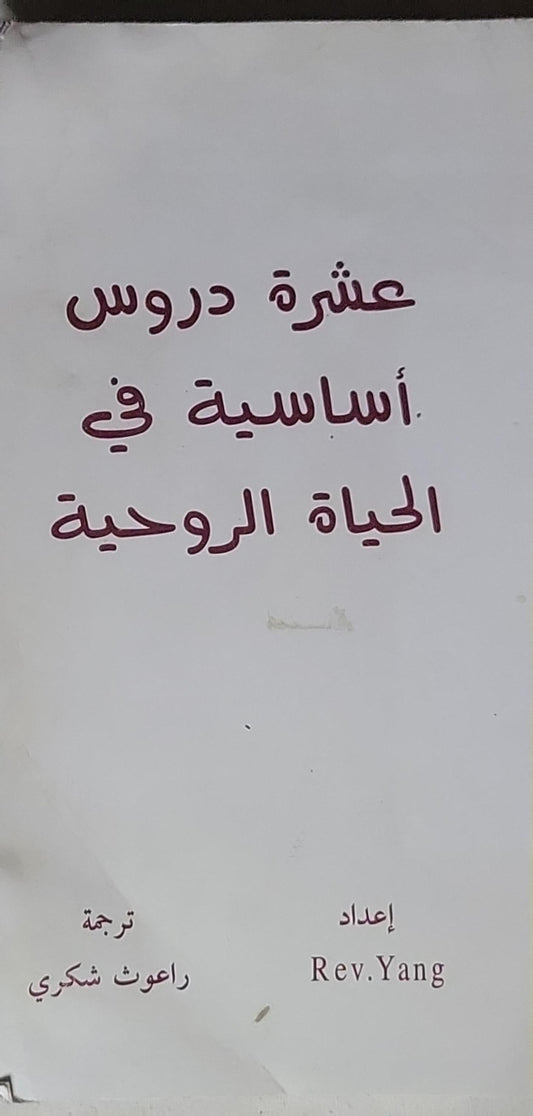 عشرة دروس
أساسية في
الحياة الروحية
إعداد
Rev.Yang
ترجمة
راعوث شكري